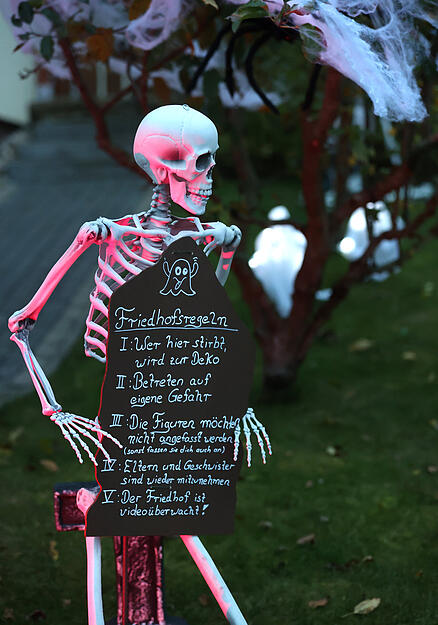 Friedhofsregeln
I: Wer hier stirbt,
wird zur Deko
II: Betreten auf
eigene Gefahr
III: Die Figuren möchten
nicht angefasst werden
(sonst fassen sie dich auch an)
IV: Eltern und Geschwister
sind wieder mitzunehmen
V: Der Friedhof ist
videoüberwacht!